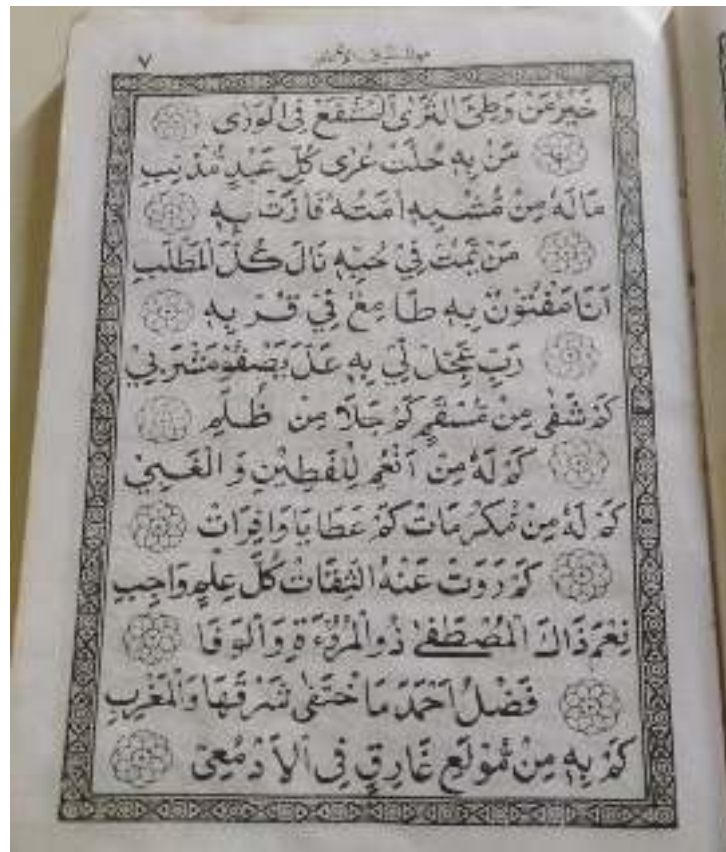 ٧
خَيْرُ مَنْ وَطِئَ الثَّرٰى الْمُشَفَّعُ فِى الْوَرٰى
مَنْ بِهٖ حُلَّتْ عُرٰى كُلِّ عَبْدٍ مُذْنِبِ
مَا لَهٗ مِنْ مُشْبِهٍ اُمَّتُهٗ فَازَتْ بِهٖ
مَنْ يَمُتْ فِيْ حُبِّهٖ نَالَ كُلَّ الْمَطْلَبِ
اَنَا مَفْتُوْنٌ بِهٖ طَامِعٌ فِيْ قُرْبِهٖ
رَبِّ عَجِّلْ لِيْ بِهٖ عَلَّ يَصْفُوْ مَشْرَبِيْ
كَمْ شَفٰى مِنْ مُسْقَمٍ كَمْ جَلَا مِنْ ظُلَمٍ
كَمْ لَهٗ مِنْ اَنْعُمٍ لِلْفَطِيْنِ وَالْغَبِيْ
كَمْ لَهٗ مِنْ مَّكْرُمَاتْ كَمْ عَطَايَا وَافِرَاتْ
كَمْ رَوَتْ عَنْهُ الثِّقَاتْ كُلَّ عِلْمٍ وَاجِبِ
نِعْمَ ذَاكَ الْمُصْطَفٰى ذُو الْمُرُوْءَةِ وَالْوَفَا
فَضْلُ اَحْمَدَ مَا خْتَفٰى شَرْقَهَا وَالْمَغْرِبِ
كَمْ بِهٖ مِنْ مُّوْلَعٍ غَارِقٍ فِى الْاَدْمُعِىْ